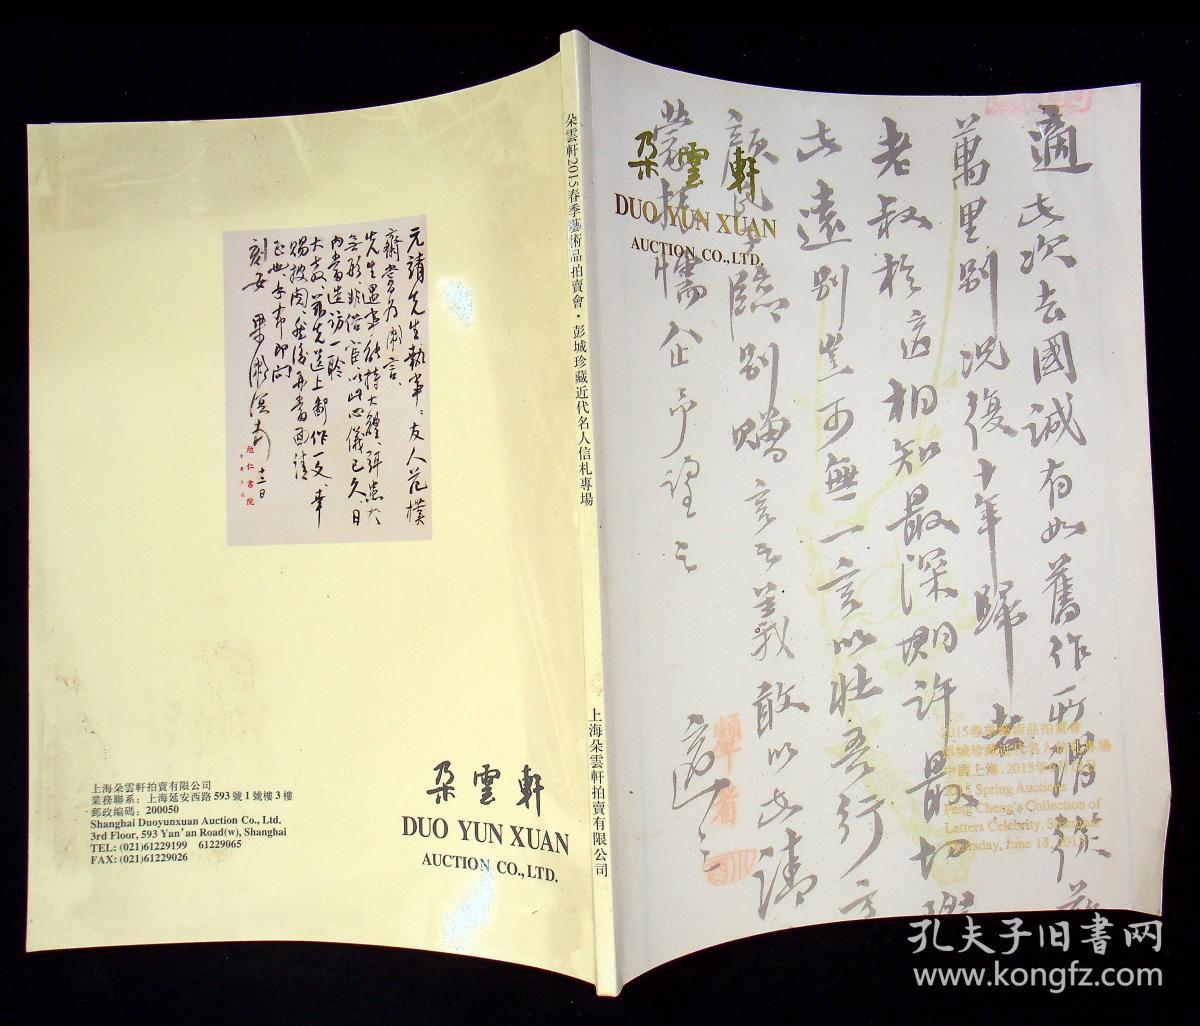 朵雲軒
DUO YUN XUAN
AUCTION CO.,LTD.
適此次去國誠有如舊作所謂從
萬里別況復十年歸者
老叔於適相知最深期許最切
此遠別豈可無一言以壯吾行
臨別贈言之義敢以此請
企予望之
適之
2015春季藝術品拍賣會
彭城珍藏近代名人信札專場
2015 Spring Auctions
Peng Cheng's Collection of
Letters Celebrity, Shanghai
Thursday, June 18, 2015
朵雲軒2015春季藝術品拍賣會·彭城珍藏近代名人信札專場
上海朵雲軒拍賣有限公司
元靖先生執事、友人范樸
齋嘗為弟言、
先生遇事能持大體、弭患於
無形、非俗官、以此心儀已久、日
內當造訪一聆
大教、茲先送上鄙作一文、幸
賜披閱、然後再當面請
正也、手布即問
刻安 梁漱溟
十二日
勉仁書院
朵雲軒
DUO YUN XUAN
AUCTION CO.,LTD.
上海朵雲軒拍賣有限公司
業務聯系：上海延安西路593號1號樓3樓
郵政編碼：200050
Shanghai Duoyunxuan Auction Co., Ltd.
3rd Floor, 593 Yan'an Road(w), Shanghai
TEL: (021)61229199 61229065
FAX: (021)61229026
孔夫子旧书网
www.kongfz.com